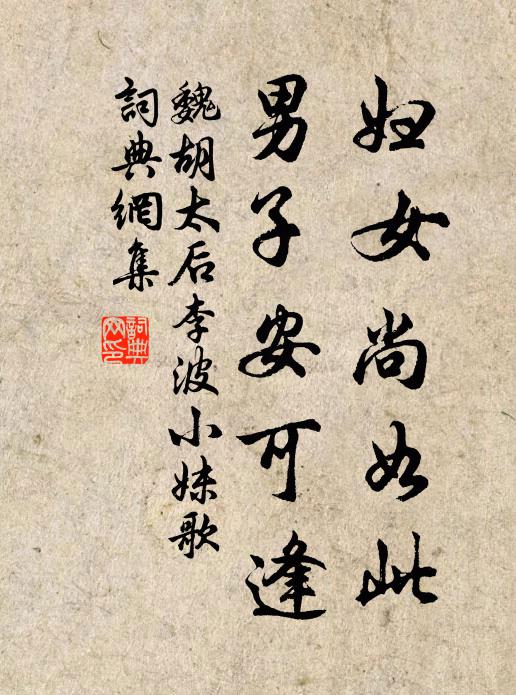 妇女尚如此
男子安可逢
魏胡太后李波小妹歌
詞典網集
詞典
网印